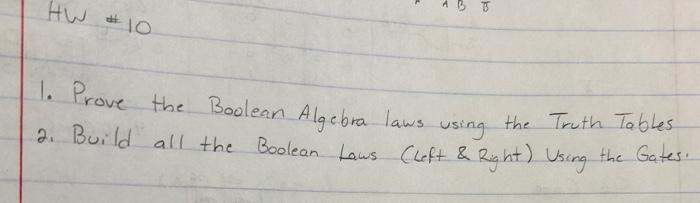 A B B̅
HW #10
1. Prove the Boolean Algebra laws using the Truth Tables
2. Build all the Boolean Laws (Left & Right) Using the Gates.